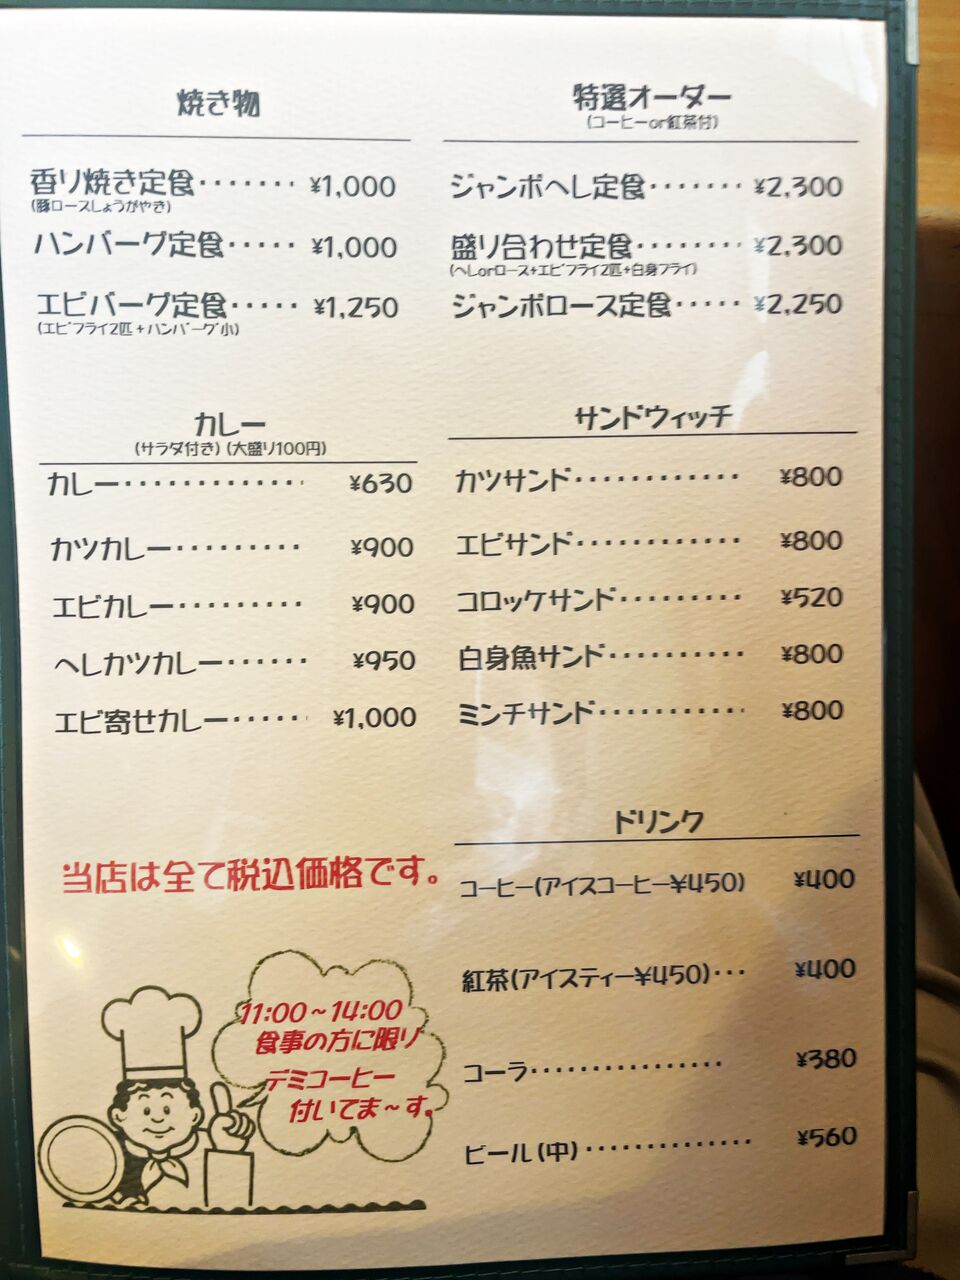 焼き物
香り焼き定食・・・・・・・ ¥1,000
(豚ロースしょうがやき)
ハンバーグ定食・・・・・ ¥1,000
エビバーグ定食・・・・・ ¥1,250
(エビフライ2匹+ハンバーグ小)
カレー
(サラダ付き)(大盛り100円)
カレー・・・・・・・・・・・・・ ¥630
カツカレー・・・・・・・・・ ¥900
エビカレー・・・・・・・・・ ¥900
へしカツカレー・・・・・・ ¥950
エビ寄せカレー・・・・・ ¥1,000
当店は全て税込価格です。
11:00~14:00
食事の方に限り
デミコーヒー
付いてま~す。
特選オーダー
(コーヒーor紅茶付)
ジャンボへし定食・・・・・・・ ¥2,300
盛り合わせ定食・・・・・・・・ ¥2,300
(へしorロース+エビフライ2匹+白身フライ)
ジャンボロース定食・・・・・ ¥2,250
サンドウィッチ
カツサンド・・・・・・・・・・・・ ¥800
エビサンド・・・・・・・・・・・・ ¥800
コロッケサンド・・・・・・・・・ ¥520
白身魚サンド・・・・・・・・・・ ¥800
ミンチサンド・・・・・・・・・・・ ¥800
ドリンク
コーヒー(アイスコーヒー¥450) ¥400
紅茶(アイスティー¥450)・・・ ¥400
コーラ・・・・・・・・・・・・・・・・ ¥380
ビール(中)・・・・・・・・・・・・・・ ¥560